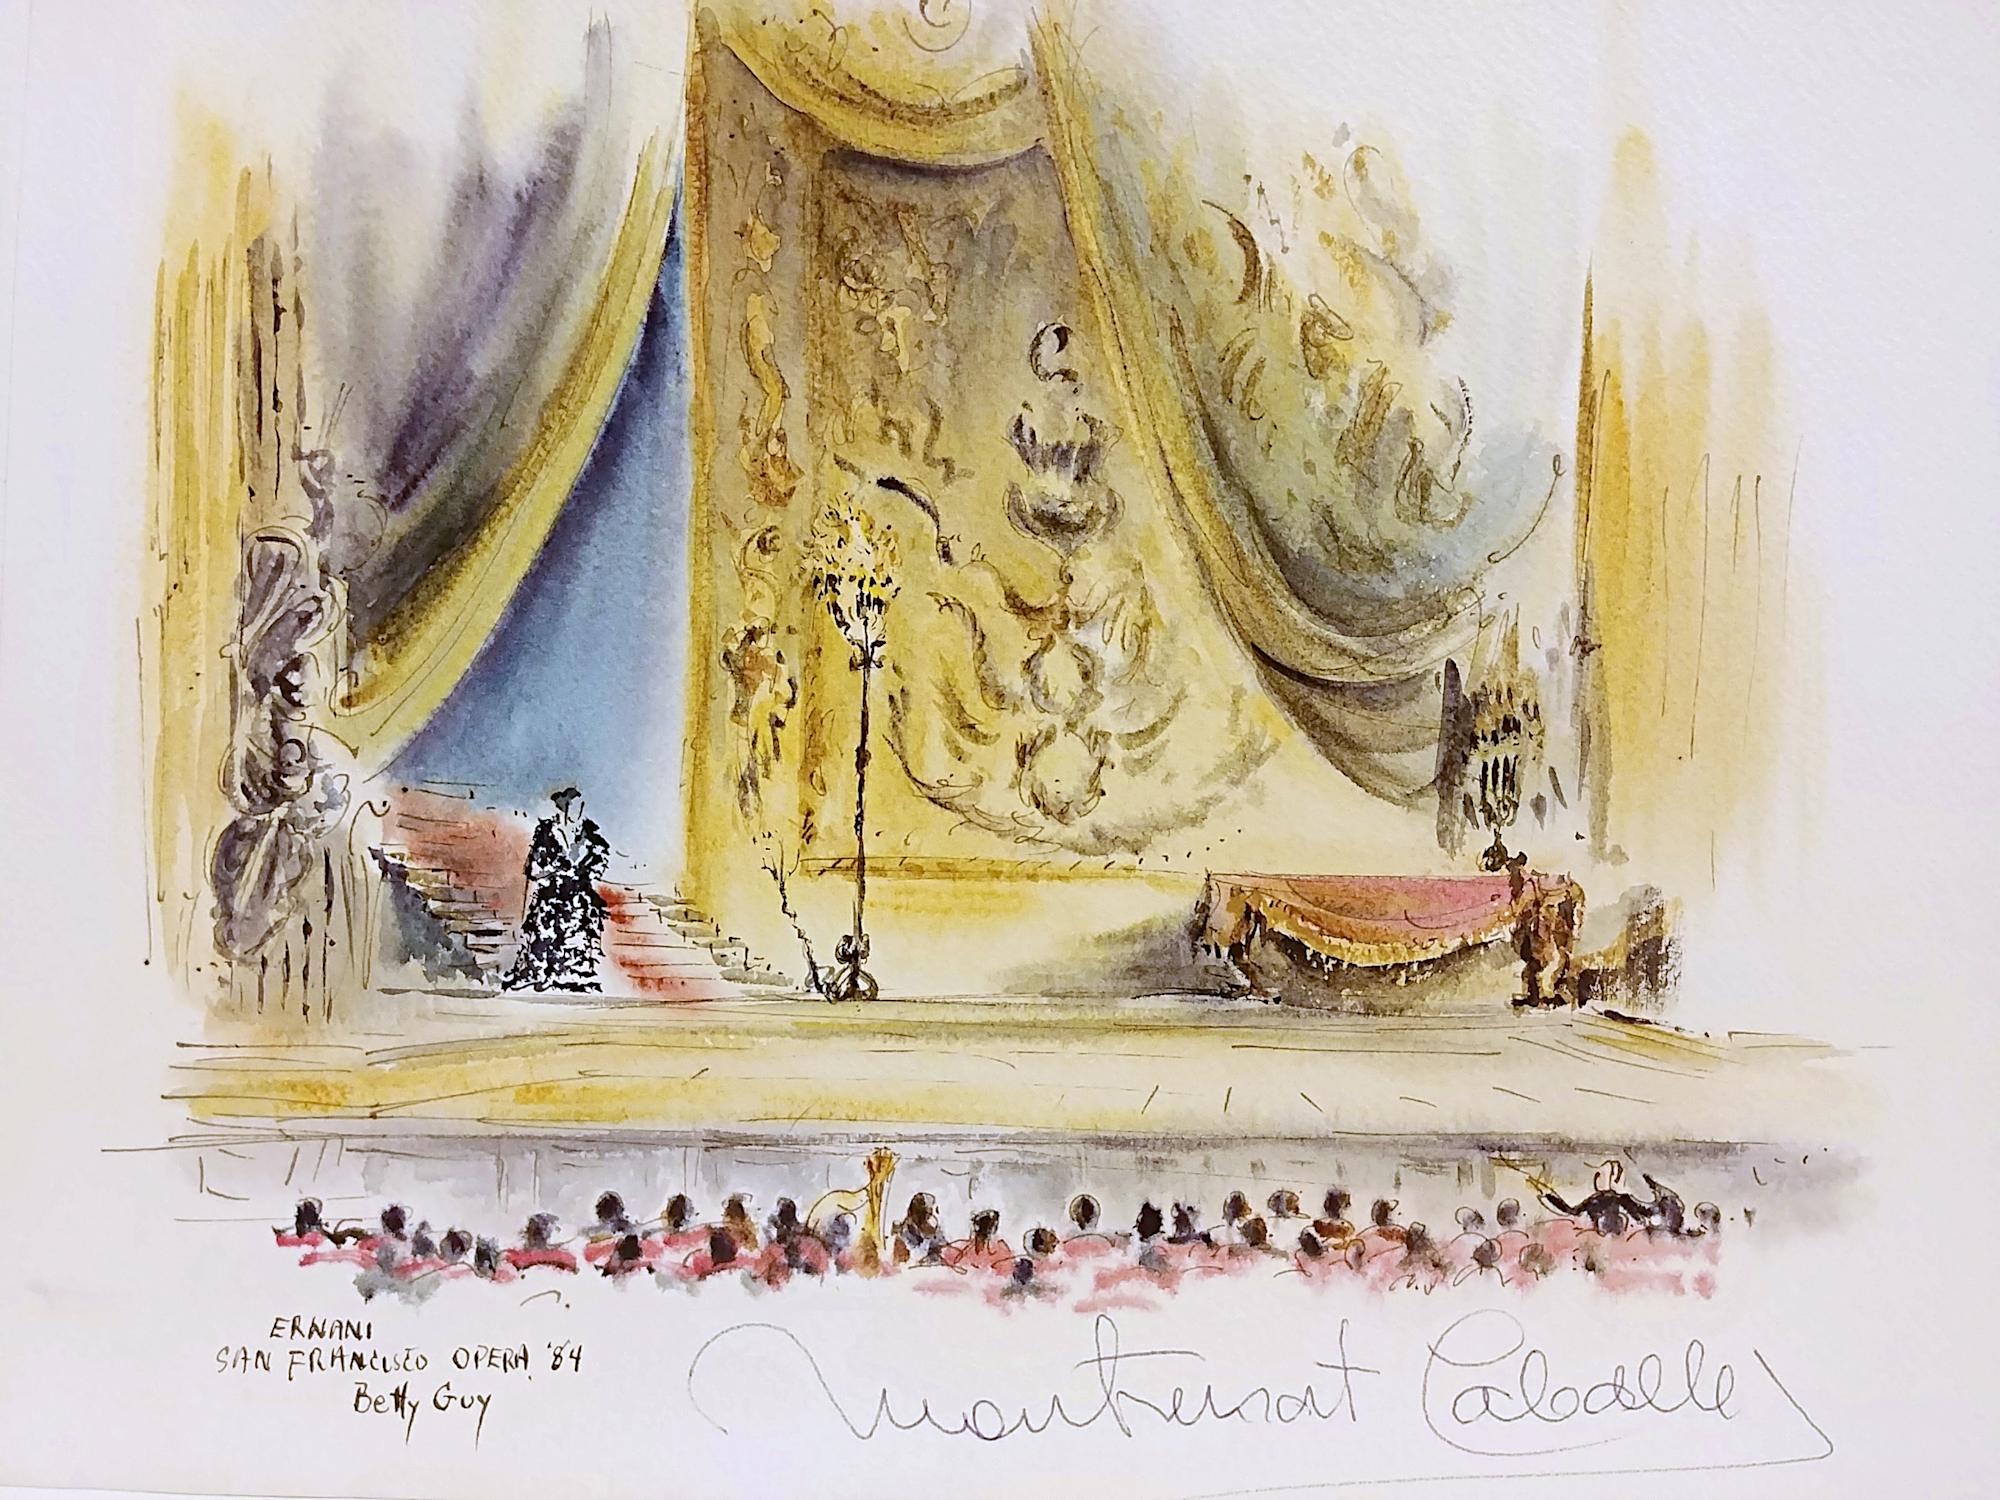 ERNANI
SAN FRANCISCO OPERA '84
Betty Guy
Montserrat Caballe